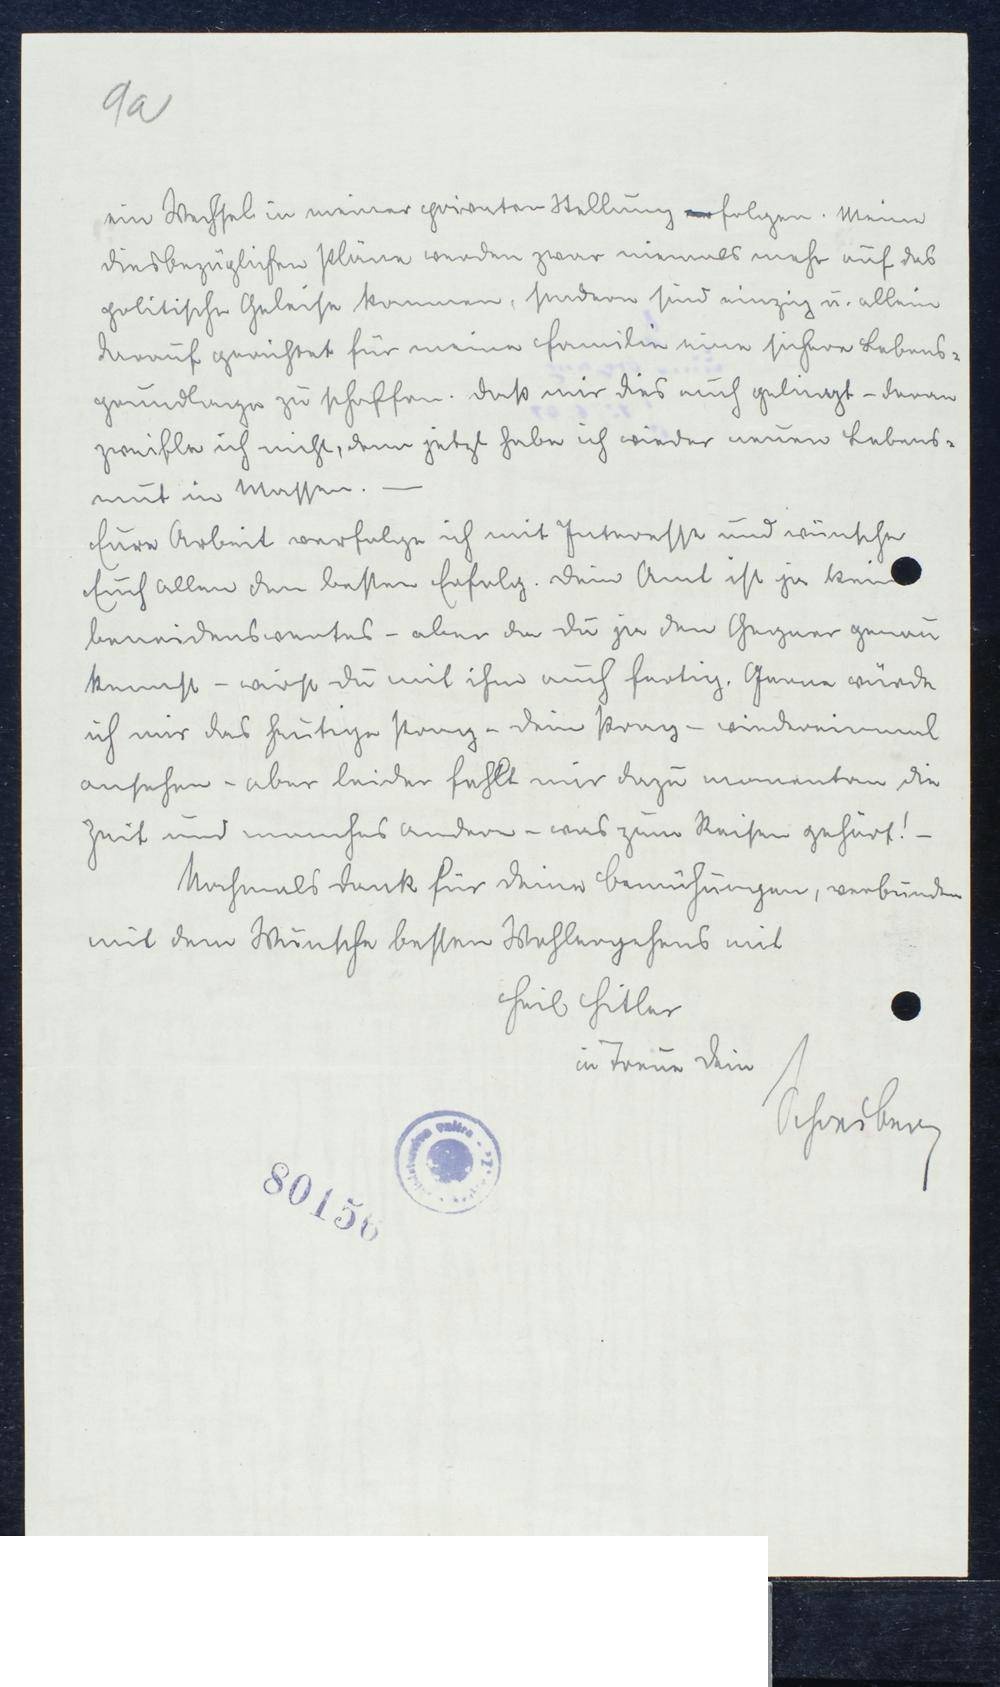 9a
ein Wechsel in meiner privaten Stellung erfolgen. Meine
diesbezüglichen Pläne werden zwar niemals mehr auf das
politische Geleise kommen, sondern sind einzig u. allein
darauf gerichtet für meine Familie eine sichere Lebens-
grundlage zu schaffen. Daß mir dies auch gelingt – daran
zweifle ich nicht, denn jetzt habe ich wieder neuen Lebens-
mut in Massen. —
Eure Arbeit verfolge ich mit Interesse und wünsche
Euch allen den besten Erfolg. Dein Amt ist ja kein
beneidenswertes – aber da Du ja den Gegner genau
kennst – wirst Du mit ihm auch fertig. Gerne würde
ich mir das heutige Prag – Dein Prag – wiedereinmal
ansehen – aber leider fehlt mir dazu momentan die
Zeit und manches andere – was zum Reisen gehört! –
Nochmals Dank für Deine Bemühungen, verbunden
mit dem Wunsche besten Wohlergehens mit
Heil Hitler
in Treue Dein
80156